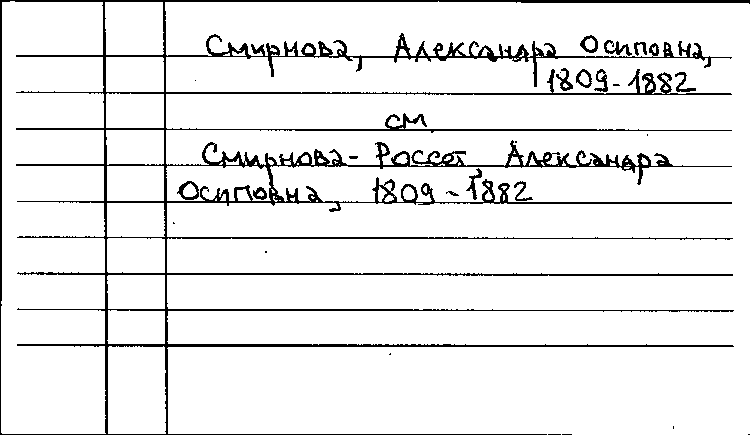 Смирнова, Александра Осиповна,
1809-1882
см.
Смирнова-Россет, Александра
Осиповна, 1809-1882